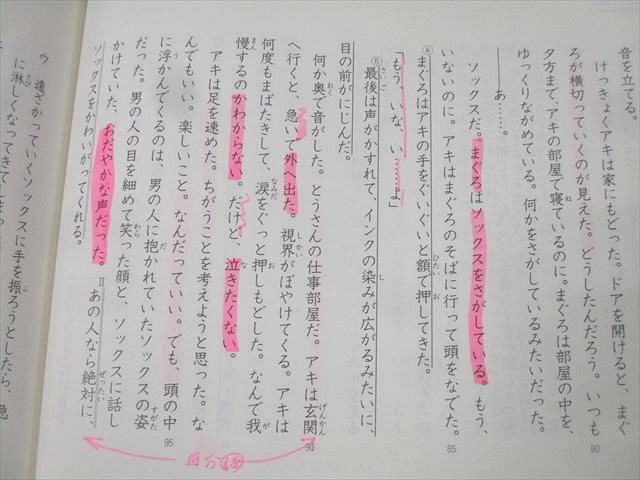 音を立てる。
けっきょくアキは家にもどった。ドアを開けると、まぐ
ろが横切っていくのが見えた。どうしたんだろう。いつも
夕方まで、アキの部屋で寝ているのに。まぐろは部屋の中を、
ゆっくりながめている。何かをさがしているみたいだった。
――あ……。
ソックスだ。まぐろはソックスをさがしている。もう、
いないのに。アキはまぐろのそばに行って頭をなでた。
④まぐろはアキの手をぐいぐいと額で押してきた。
「もう、いな、い……よ」
⑤最後は声がかすれて、インクの染みが広がるみたいに、
目の前がにじんだ。
何か奥で音がした。とうさんの仕事部屋だ。アキは玄関
へ行くと、急いで外へ出た。視界がぼやけてくる。アキは
何度もまばたきして、涙をぐっと押しもどした。なんで我
慢するのかわからない。だけど、泣きたくない。
アキは足を速めた。ちがうことを考えようと思った。な
んでもいい。楽しいこと。なんだっていい。でも、頭の中
に浮かんでくるのは、男の人に抱かれていたソックスの姿
だった。男の人の目を細めて笑った顔と、ソックスに話し
かけていた、おだやかな声だった。Ⅱあの人なら絶対に、
ソックスをかわいがってくれる。
ウ 遠ざかっていくソックスに手を振ろうとしたら、急
に淋しくなってきて
80
85
90
95